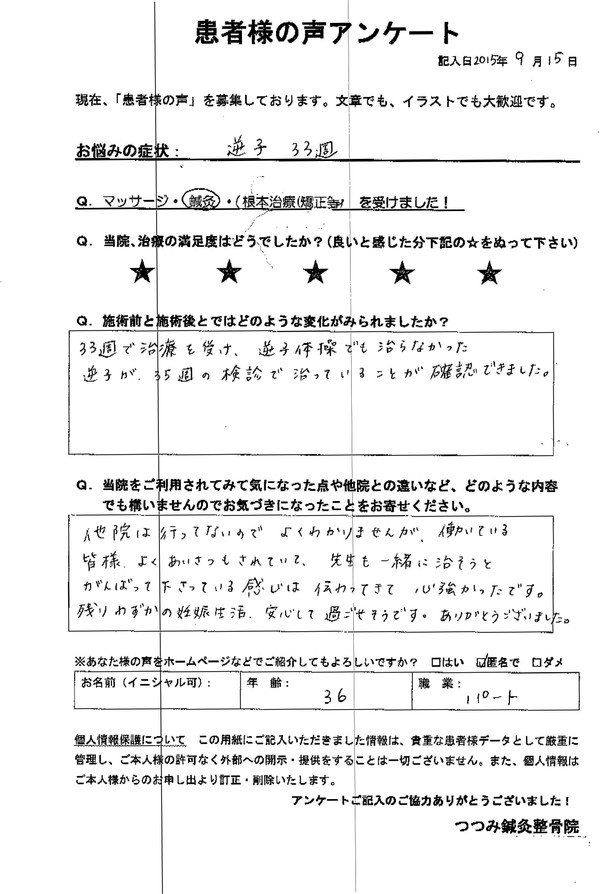 患者様の声アンケート
記入日2015年 9 月 15 日
現在、「患者様の声」を募集しております。文章でも、イラストでも大歓迎です。
お悩みの症状： 逆子 33週
Q．マッサージ・鍼灸・(根本治療(矯正等)) を受けました！
Q．当院、治療の満足度はどうでしたか？(良いと感じた分下記の☆をぬって下さい)
★ ★ ★ ★ ★
Q．施術前と施術後とではどのような変化がみられましたか？
33週で治療を受け、逆子体操でも治らなかった
逆子が、35週の検診で治っていることが確認できました。
Q．当院をご利用されてみて気になった点や他院との違いなど、どのような内容
でも構いませんのでお気づきになったことをお寄せください。
他院は行ってないので よくわかりませんが、働いている
皆様、よくあいさつもされていて、先生も一緒に治そうと
がんばって下さっている感じは 伝わってきて 心強かったです。
残りわずかの妊娠生活、安心して過ごせそうです。ありがとうございました。
※あなた様の声をホームページなどでご紹介してもよろしいですか？ □はい ☑匿名で □ダメ
お名前（イニシャル可）： 年 齢： 36 職 業： パート
個人情報保護について この用紙にご記入いただきました情報は、貴重な患者様データとして厳重に
管理し、ご本人様の許可なく外部への開示・提供をすることは一切ございません。また、個人情報は
ご本人様からのお申し出より訂正・削除いたします。
アンケートご記入のご協力ありがとうございました！
つつみ鍼灸整骨院